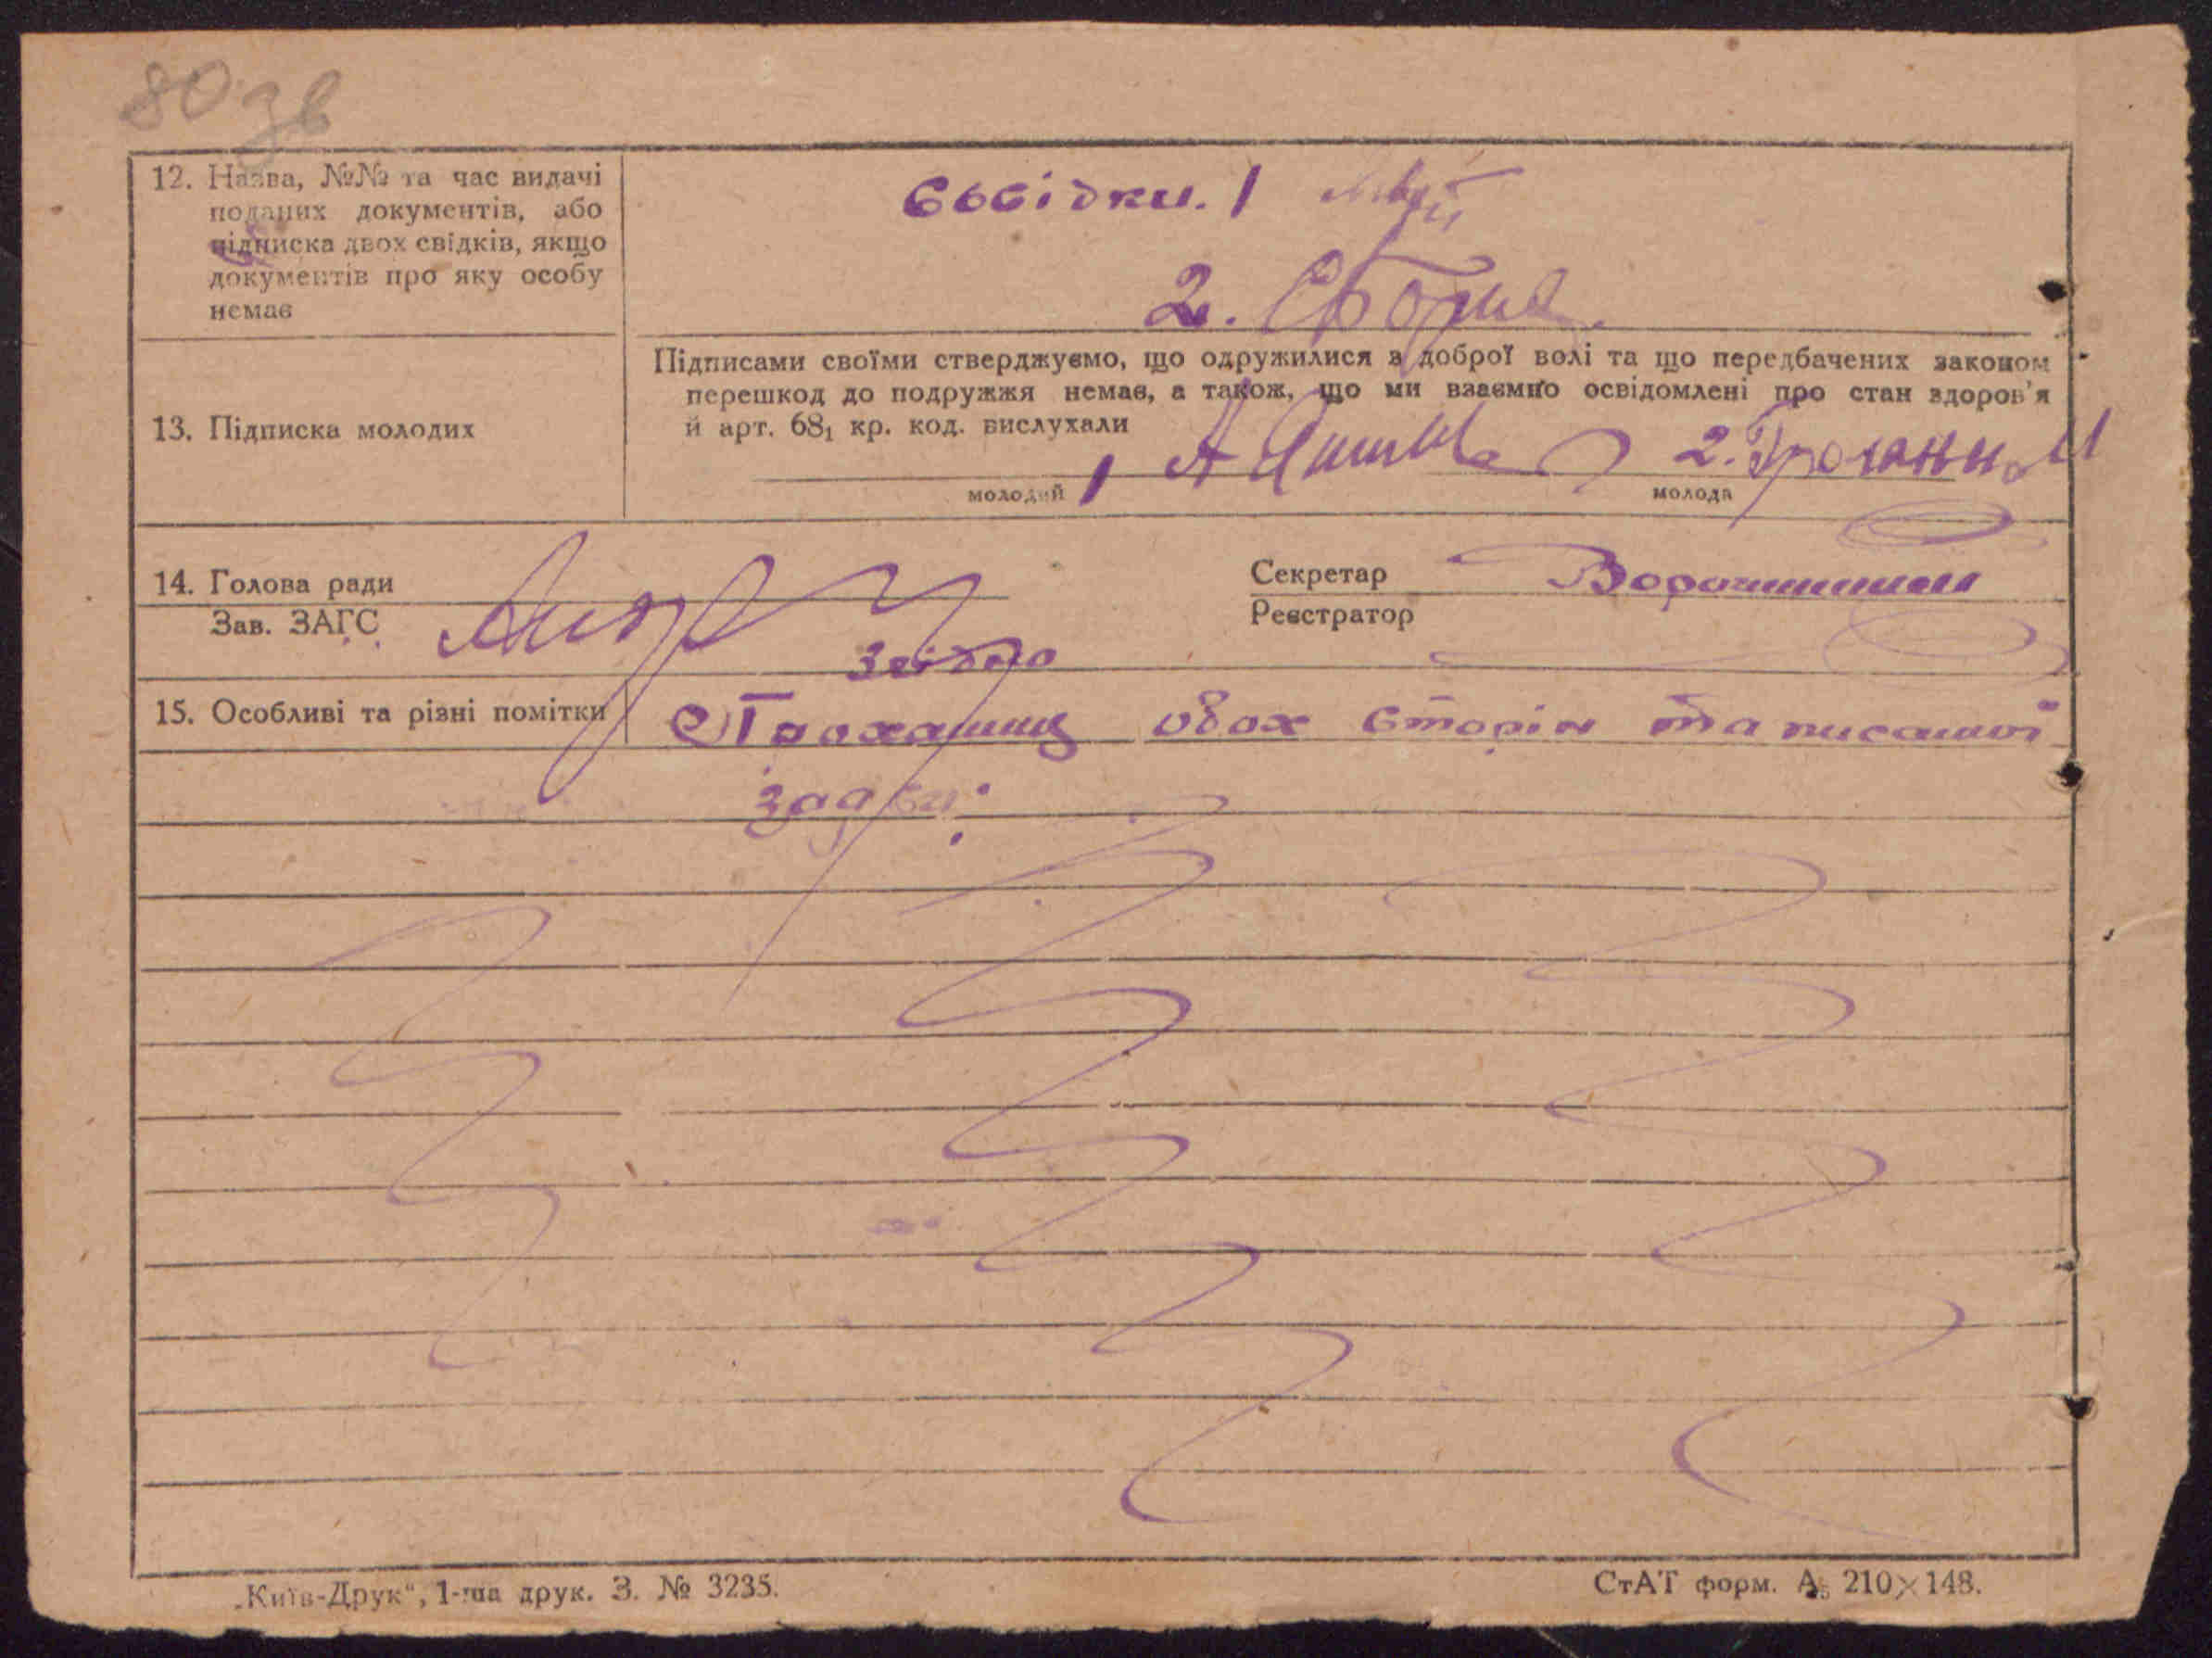 80 зв
12. Назва, №№ та час видачі
поданих документів, або
підписка двох свідків, якщо
документів про яку особу
немає
Свідки. 1
2.
13. Підписка молодих
Підписами своїми стверджуємо, що одружилися з доброї волі та що передбачених законом
перешкод до подружжя немає, а також, що ми взаємно освідомлені про стан здоров'я
й арт. 68₁ кр. код. вислухали
1 А
2.
молодий
молода
14. Голова ради
Зав. ЗАГС
Секретар
Реєстратор
Згідно
15. Особливі та різні помітки
обох сторін та писаної
заяви.
„Київ-Друк“, 1-ша друк. З. № 3235.
СтАТ форм. А₅ 210×148.